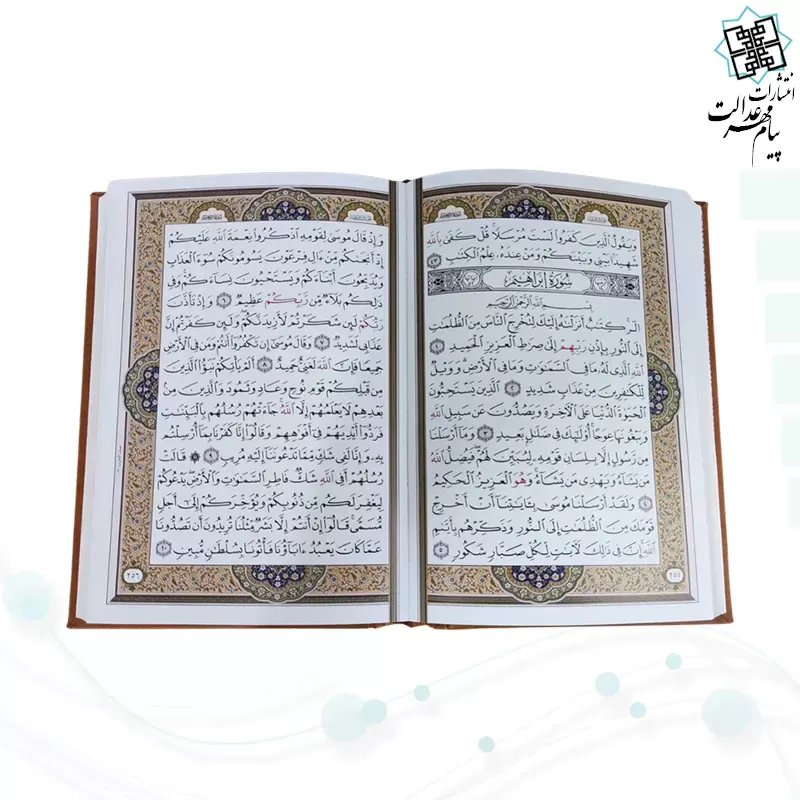 انتشارات
پیام مهر عدالت
وَيَقُولُ الَّذِينَ كَفَرُوا لَسْتَ مُرْسَلًا قُلْ كَفَىٰ بِاللَّهِ
شَهِيدًا بَيْنِي وَبَيْنَكُمْ وَمَنْ عِندَهُ عِلْمُ الْكِتَابِ ٤٣
سُورَةُ إِبْرَاهِيمَ
بِسْمِ اللَّهِ الرَّحْمَٰنِ الرَّحِيمِ
الٓر كِتَابٌ أَنزَلْنَاهُ إِلَيْكَ لِتُخْرِجَ النَّاسَ مِنَ الظُّلُمَاتِ
إِلَى النُّورِ بِإِذْنِ رَبِّهِمْ إِلَىٰ صِرَاطِ الْعَزِيزِ الْحَمِيدِ ١
اللَّهِ الَّذِي لَهُ مَا فِي السَّمَاوَاتِ وَمَا فِي الْأَرْضِ وَوَيْلٌ
لِّلْكَافِرِينَ مِنْ عَذَابٍ شَدِيدٍ ٢ الَّذِينَ يَسْتَحِبُّونَ
الْحَيَاةَ الدُّنْيَا عَلَى الْآخِرَةِ وَيَصُدُّونَ عَن سَبِيلِ اللَّهِ
وَيَبْغُونَهَا عِوَجًا أُولَٰئِكَ فِي ضَلَالٍ بَعِيدٍ ٣ وَمَا أَرْسَلْنَا
مِن رَّسُولٍ إِلَّا بِلِسَانِ قَوْمِهِ لِيُبَيِّنَ لَهُمْ فَيُضِلُّ اللَّهُ
مَن يَشَاءُ وَيَهْدِي مَن يَشَاءُ وَهُوَ الْعَزِيزُ الْحَكِيمُ
٤ وَلَقَدْ أَرْسَلْنَا مُوسَىٰ بِآيَاتِنَا أَنْ أَخْرِجْ
قَوْمَكَ مِنَ الظُّلُمَاتِ إِلَى النُّورِ وَذَكِّرْهُم بِأَيَّامِ
اللَّهِ إِنَّ فِي ذَٰلِكَ لَآيَاتٍ لِّكُلِّ صَبَّارٍ شَكُورٍ ٥
٢٥٥
وَإِذْ قَالَ مُوسَىٰ لِقَوْمِهِ اذْكُرُوا نِعْمَةَ اللَّهِ عَلَيْكُمْ
إِذْ أَنجَاكُم مِّنْ آلِ فِرْعَوْنَ يَسُومُونَكُمْ سُوءَ الْعَذَابِ
وَيُذَبِّحُونَ أَبْنَاءَكُمْ وَيَسْتَحْيُونَ نِسَاءَكُمْ وَفِي
ذَٰلِكُم بَلَاءٌ مِّن رَّبِّكُمْ عَظِيمٌ ٦ وَإِذْ تَأَذَّنَ
رَبُّكُمْ لَئِن شَكَرْتُمْ لَأَزِيدَنَّكُمْ وَلَئِن كَفَرْتُمْ إِنَّ
عَذَابِي لَشَدِيدٌ ٧ وَقَالَ مُوسَىٰ إِن تَكْفُرُوا أَنتُمْ وَمَن فِي الْأَرْضِ
جَمِيعًا فَإِنَّ اللَّهَ لَغَنِيٌّ حَمِيدٌ ٨ أَلَمْ يَأْتِكُمْ نَبَأُ الَّذِينَ
مِن قَبْلِكُمْ قَوْمِ نُوحٍ وَعَادٍ وَثَمُودَ وَالَّذِينَ مِن
بَعْدِهِمْ لَا يَعْلَمُهُمْ إِلَّا اللَّهُ جَاءَتْهُمْ رُسُلُهُم بِالْبَيِّنَاتِ
فَرَدُّوا أَيْدِيَهُمْ فِي أَفْوَاهِهِمْ وَقَالُوا إِنَّا كَفَرْنَا بِمَا أُرْسِلْتُم
بِهِ وَإِنَّا لَفِي شَكٍّ مِّمَّا تَدْعُونَنَا إِلَيْهِ مُرِيبٍ ٩ قَالَتْ
رُسُلُهُمْ أَفِي اللَّهِ شَكٌّ فَاطِرِ السَّمَاوَاتِ وَالْأَرْضِ يَدْعُوكُمْ
لِيَغْفِرَ لَكُم مِّن ذُنُوبِكُمْ وَيُؤَخِّرَكُمْ إِلَىٰ أَجَلٍ
مُّسَمًّى قَالُوا إِنْ أَنتُمْ إِلَّا بَشَرٌ مِّثْلُنَا تُرِيدُونَ أَن تَصُدُّونَا
عَمَّا كَانَ يَعْبُدُ آبَاؤُنَا فَأْتُونَا بِسُلْطَانٍ مُّبِينٍ ١٠
٢٥٦